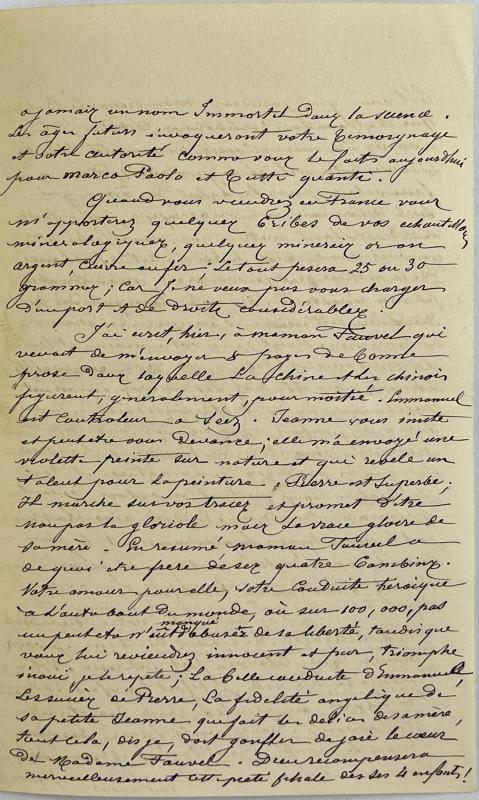 a jamais un nom Immortel dans la science.
Les âges futurs invoqueront votre temoignage
et votre autorité comme vous le faites aujourd'hui
pour Marco Paolo et tutti quanti.
Quand vous viendrez en France vous
m'apporterez quelques bribes de vos echantillons
mineralogiques, quelques minerais or ou
argent, cuivre ou fer; Le tout pesera 25 ou 30
grammes; car Je ne veux pas vous charger
d'un port et de droits considérables.
J'ai ecrit, hier, à maman Fauvel qui
venait de m'envoyer 8 pages de bonne
prose dans laquelle La Chine et les chinois
figurent, generalement, pour moitié. Emmanuel
est Controleur a Seez. Jeanne vous imite
et peut etre vous devance; elle m'a envoyé une
violette peinte sur nature et qui revele un
talent pour la peinture. Pierre est superbe;
Il marche sur vos traces et promet d'être
non pas la gloriole mais la vraie gloire de
sa mère. En resumé maman Fauvel a
de quoi etre fiere de ses quatre Cambins.
Votre amour pour elle, votre conduite heroique
a l'autre bout du monde, où sur 100,000, pas
un peut etre n'eut manqué d'abuser de sa liberté, tandis que
vous lui reviendrez innocent et pur, triomphe
inoui je le repete; La belle conduite d'Emmanuel,
Les succès de Pierre, La fidelité angelique de
sa petite Jeanne qui fait les delices de sa mère,
tout cela, dis je, doit gonfler de joie le cœur
De Madame Fauvel. Dieu recompensera
merveilleusement cette pieté filiale des ses 4 enfants!